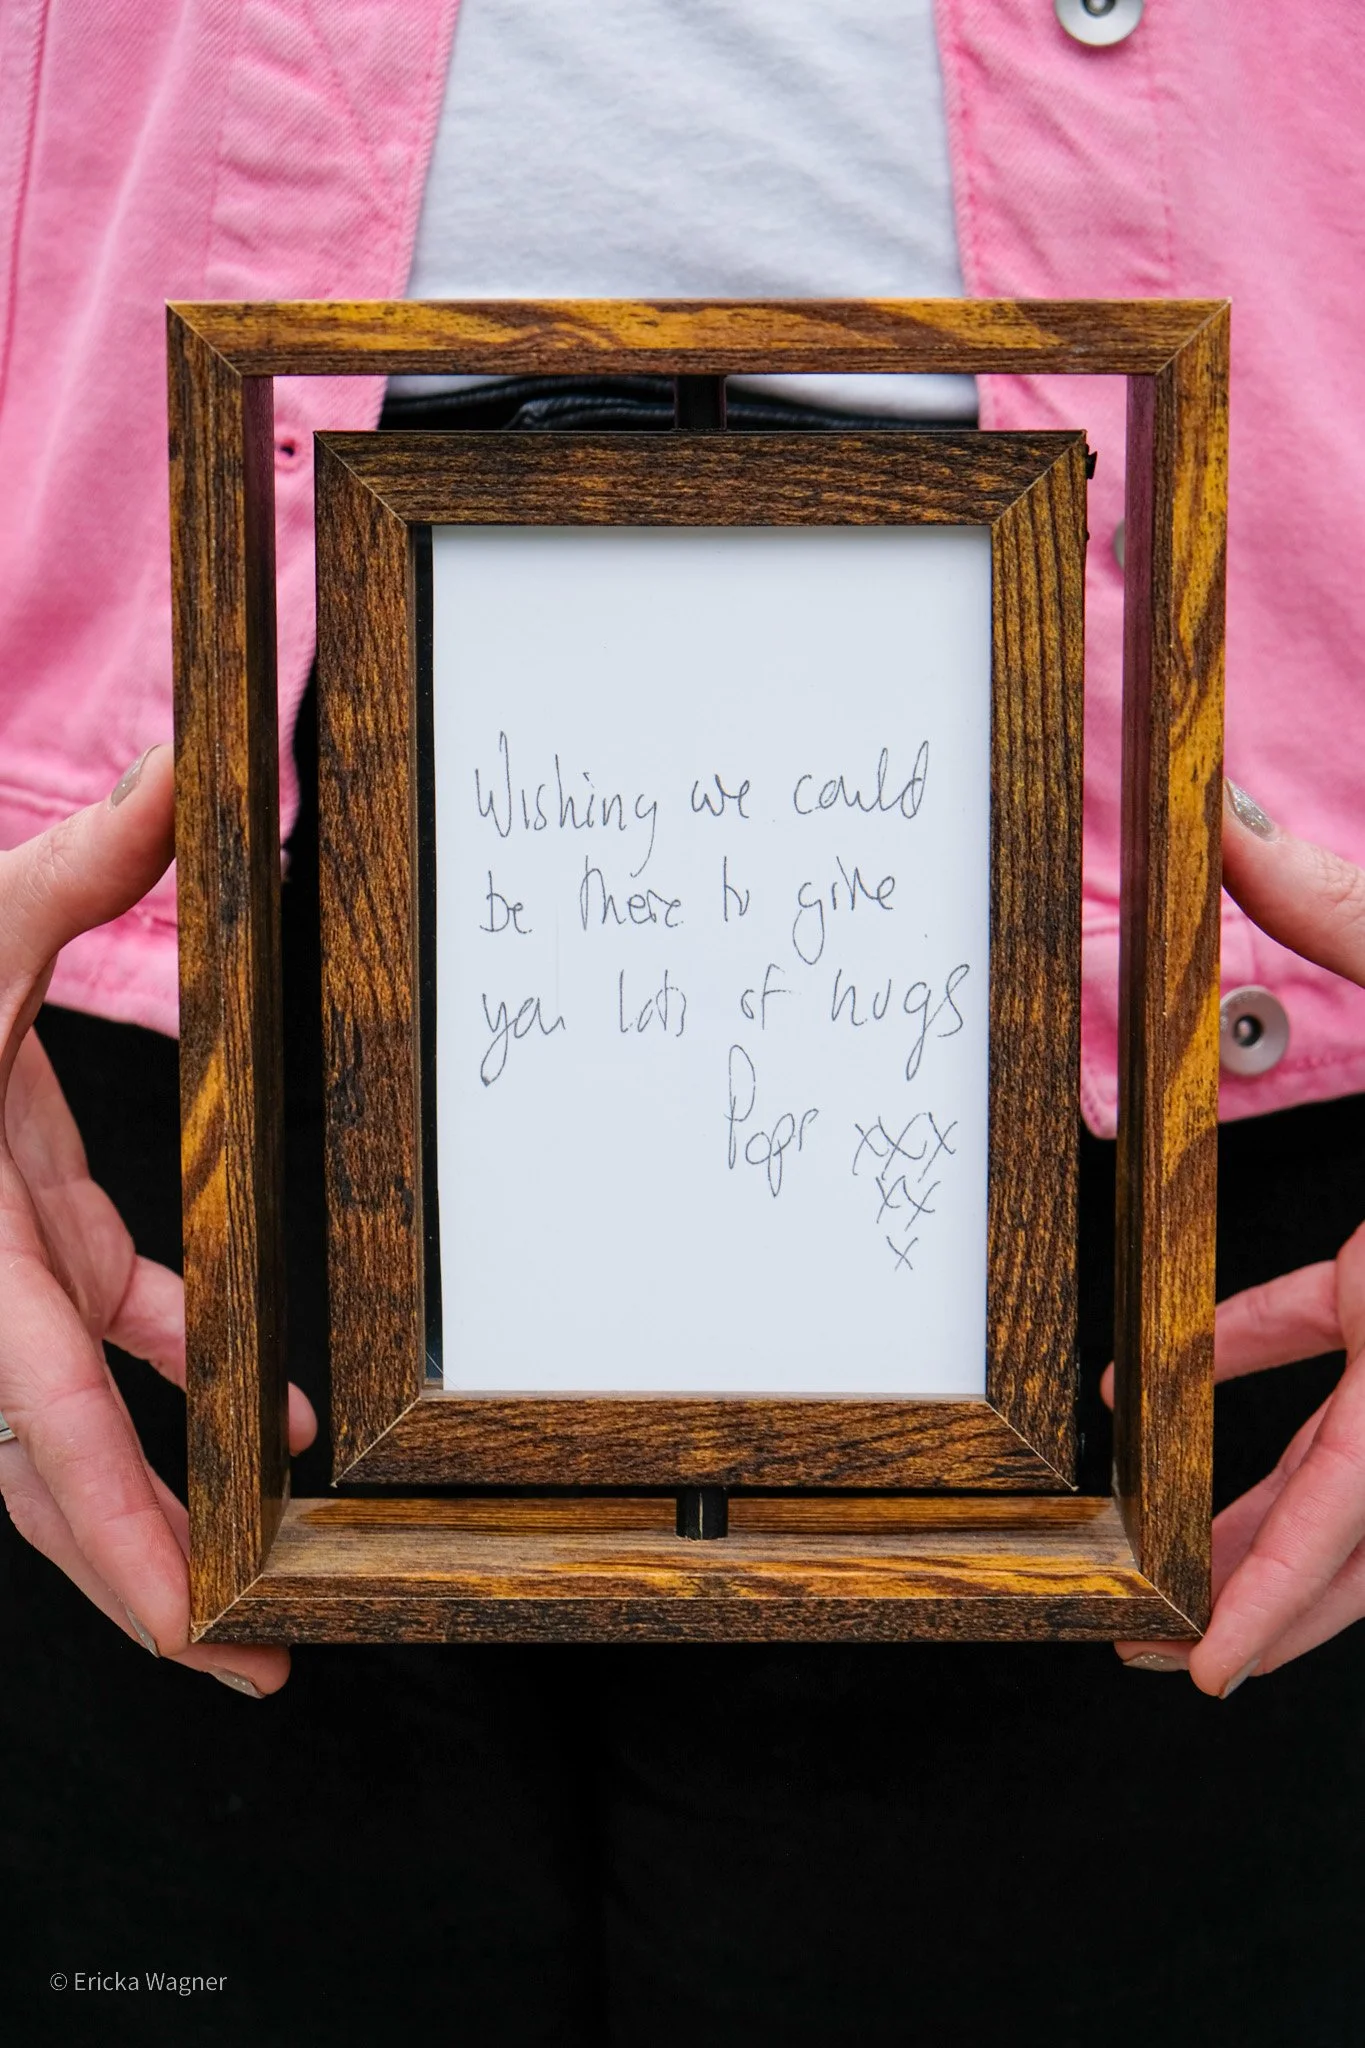 Wishing we could
be there to give
you lots of hugs
Pops xxx
xx
x
© Ericka Wagner